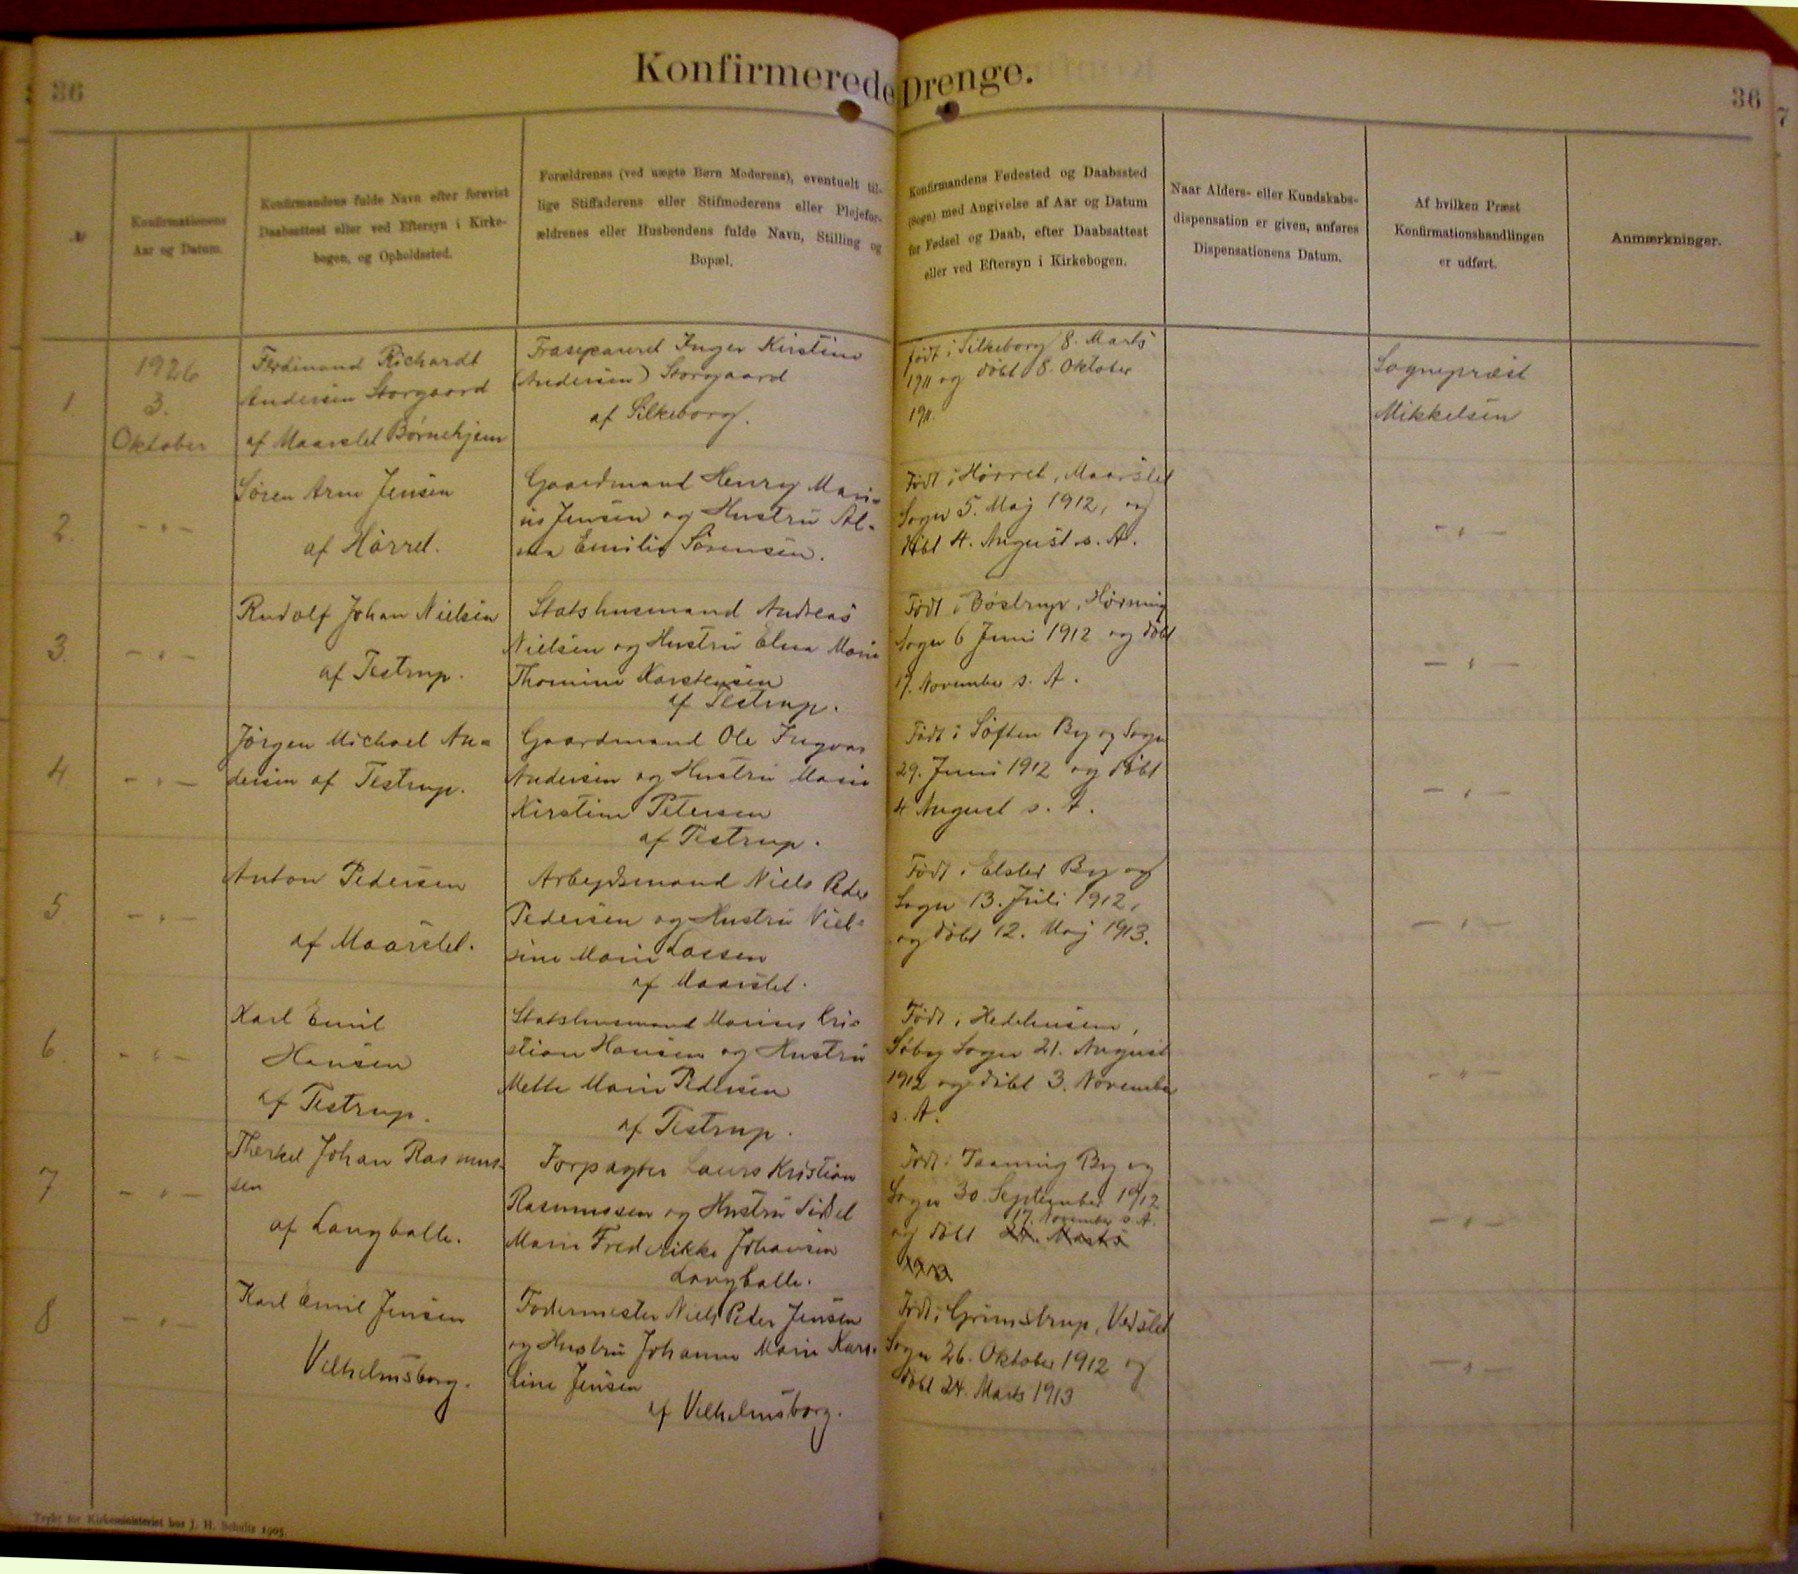 36
Konfirmerede Drenge.
36
№
Konfirmationens
Aar og Datum.
Konfirmandens fulde Navn efter forevist
Daabsattest eller ved Eftersyn i Kirke-
bogen, og Opholdssted.
Forældrenes (ved uægte Børn Moderens), eventuelt til-
lige Stiffaderens eller Stifmoderens eller Plejefor-
ældrenes eller Husbondens fulde Navn, Stilling og
Bopæl.
Konfirmandens Fødested og Daabssted
(Sogn) med Angivelse af Aar og Datum
for Fødsel og Daab, efter Daabsattest
eller ved Eftersyn i Kirkebogen.
Naar Alders- eller Kundskabs-
dispensation er given, anføres
Dispensationens Datum.
Af hvilken Præst
Konfirmationshandlingen
er udført.
Anmærkninger.
1.
1926
3.
Oktober
Ferdinand Richardt
Andersen Storgaard
af Maarslet Børnehjem
Frasepareret Inger Kirstine
(Andersen) Storgaard
af Silkeborg.
født i Silkeborg 8. Marts
1911 og døbt 8. Oktober
1911.
Sognepræst
Mikkelsen
2.
- " -
Søren Arne Jensen
af Hørret.
Gaardmand Henry Mari-
us Jensen og Hustru Al-
ma Emilie Sørensen.
Født i Hørret, Maarslet
Sogn 5. Maj 1912, og
døbt 4. August s. A.
- " -
3.
- " -
Rudolf Johan Nielsen
af Testrup.
Statshusmand Andreas
Nielsen og Hustru Elna Marie
Thomine Karstensen
af Testrup.
Født i Bøstrup, Hørning
Sogn 6 Juni 1912 og døbt
17. November s. A.
- " -
4
- " -
Jørgen Michael An-
dersen af Testrup.
Gaardmand Ole Ingvar
Andersen og Hustru Marie
Kirstine Petersen
af Testrup.
Født i Søften By og Sogn
29. Juni 1912 og døbt
4 August s. A.
- " -
5.
- " -
Anton Pedersen
af Maarslet.
Arbejdsmand Niels Peder
Pedersen og Hustru Niel-
sine Marie Lassen
af Maarslet.
Født i Elsted By og
Sogn 13. Juli 1912,
og døbt 12. Maj 1913.
- " -
6.
- " -
Karl Emil
Hansen
af Testrup.
Statshusmand Marius Kri-
stian Hansen og Hustru
Mette Marie Pedersen
af Testrup.
Født i Hedehusene,
Søby Sogn 21. August
1912 og døbt 3. November
s. A.
- " -
7
- " -
Therkel Johan Rasmus-
sen
af Langballe.
Forpagter Laurs Kristian
Rasmussen og Hustru Sidsel
Marie Frederikke Johansen
Langballe.
Født i Taaning By og
Sogn 30. September 1912
17. November s. A.
og døbt 24. Marts
1913
- " -
8
- " -
Karl Emil Jensen
Vilhelmsborg.
Fodermester Niels Peter Jensen
og Hustru Johanne Marie Karo-
line Jensen
af Vilhelmsborg.
Født i Grimstrup, Vedslet
Sogn 26. Oktober 1912 og
døbt 24. Marts 1913
- " -
Trykt for Kirkeministeriet hos J. H. Schultz 1905.